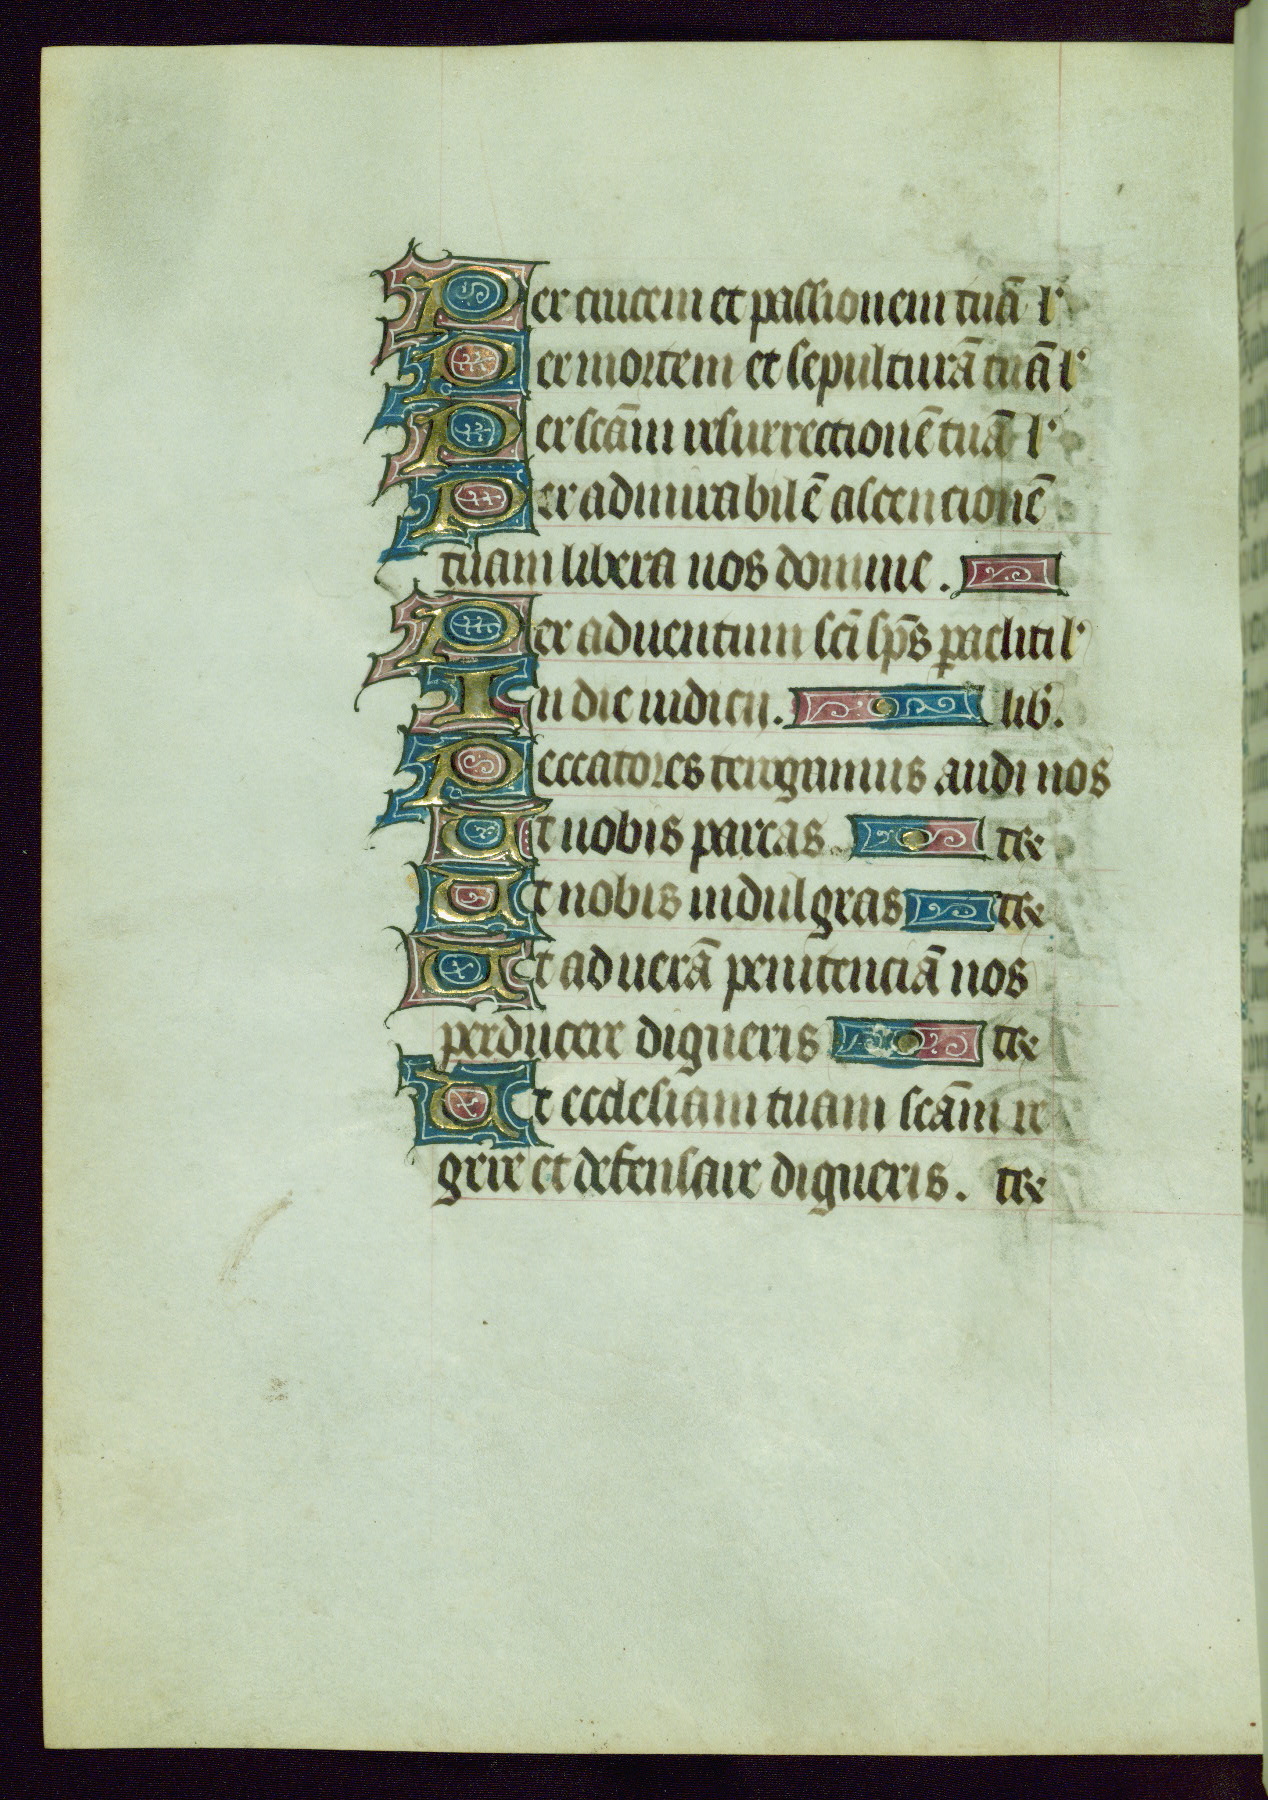 Per crucem et passionem tuā l'
Per mortem et sepulturā tuā l'
Per scām resurrectionē tuā l'
Per admirabilē ascencionē
tuam libera nos domine.
Per aduentum scī sp̄s pacliti l'
In die iudicij. lib.
Peccatores te rogamus audi nos
Ut nobis parcas. te r
Ut nobis indulgeas te r
Ut ad uerā penitenciā nos
perducere digneris te r
Ut ecclesiam tuam scām re
gere et defensare digneris. te r